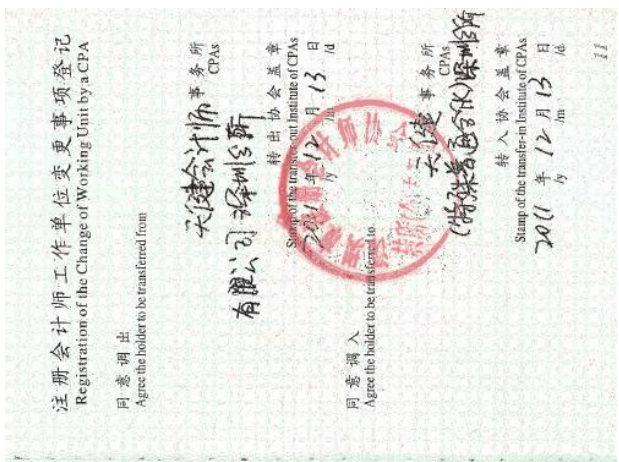 注册会计师工作单位变更事项登记
Registration of the Change of Working Unit by a CPA
同意调出
Agree the holder to be transferred from
天健会计师事务所
CPAs
有限公司深圳分所
转出协会盖章
Stamp of the transfer-out Institute of CPAs
2011年12月13日
/y /m /d
同意调入
Agree the holder to be transferred to
天健事务所
CPAs
(特殊普通合伙)深圳分所
转入协会盖章
Stamp of the transfer-in Institute of CPAs
2011年12月13日
/y /m /d
11